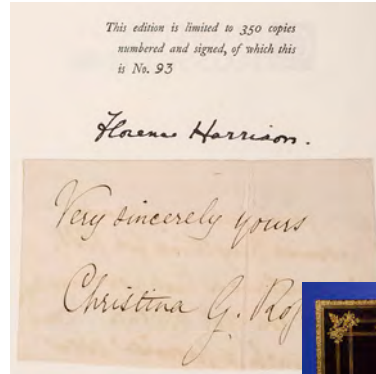 This edition is limited to 350 copies
numbered and signed, of which this
is No. 93
Florence Harrison.
Very sincerely yours
Christina G.